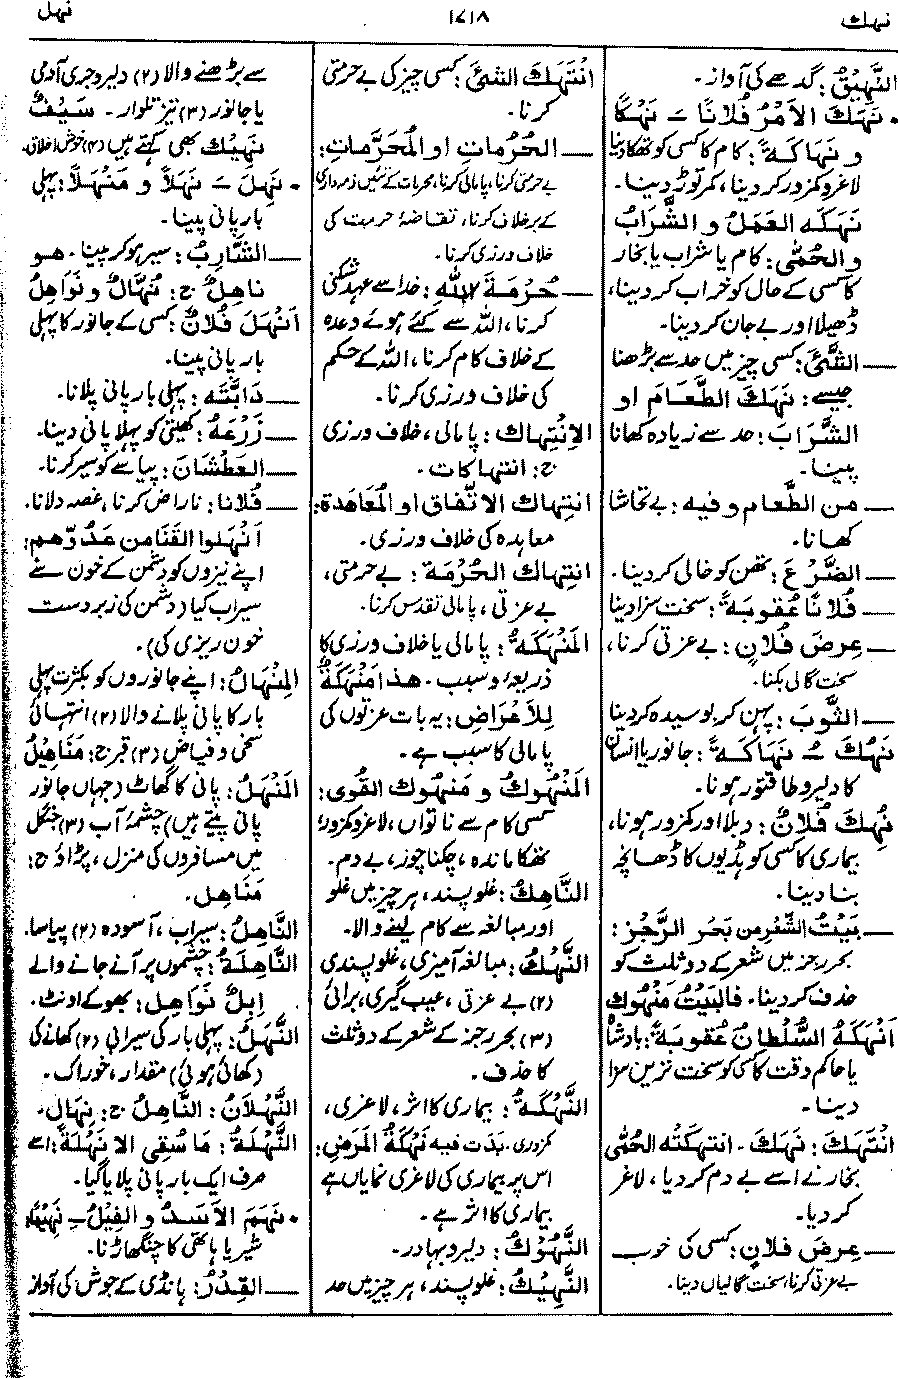 نہك ۱۷۱۸ نہل
النَّهِيْقُ: گدھے کی آواز۔
• نَهَكَ الاَمْرُ فُلَانًا ـَ نَهْكًا
و نَهَاكَةً: کام کا کسی کو تھکا دینا
لاغر و کمزور کر دینا، کمر توڑ دینا۔
نَهَكَه العَمَلُ و الشَّرَابُ
و الحُمّٰی: کام یا شراب یا بخار
کا کسی کے حال کو خراب کر دینا،
ڈھیلا اور بے جان کر دینا۔
— الشَّیْءَ: کسی چیز میں حد سے بڑھنا
جیسے: نَهَكَ الطَّعَامَ او
الشَّرَابَ: حد سے زیادہ کھانا
پینا۔
— من الطَّعام و فیه: بے تحاشا
کھانا۔
— الضَّرْعَ: تھن کو خالی کر دینا۔
— فُلَانًا عُقوبَةً: سخت سزا دینا
— عِرضَ فُلَانٍ: بے عزتی کرنا،
سخت گالی بکنا۔
— الثَّوبَ: پہن کر بوسیدہ کر دینا
نَهُكَ ـُ نَهَاكَةً: جانور یا انسان
کا دلیر و طاقتور ہونا۔
نُهِكَ فُلَانٌ: دبلا اور کمزور ہونا،
بیماری کا کسی کو ہڈیوں کا ڈھانچہ
بنا دینا۔
— بَيْتُ الشِّعْرِ من بَحَر الرَّجْزِ:
بحر رجز میں شعر کے دو ثلث کو
حذف کر دینا۔ فالبَيْتُ مَنْهُوك
اَنْهَكَهُ السُّلْطَانُ عُقوبَةً: بادشاہ
یا حاکم وقت کا کسی کو سخت ترین سزا
دینا۔
اَنْتَهَكَ: نَهَكَ۔ انتهكَتْه الحُمّٰی
بخار نے اسے بے دم کر دیا، لاغر
کر دیا۔
— عِرضَ فلانٍ: کسی کی خوب
بے عزتی کرنا، سخت گالیاں دینا۔
اِنْتَهَكَ الشیْءَ: کسی چیز کی بے حرمتی
کرنا۔
— الحُرُماتِ او المُحَرَّماتِ:
بے حرمتی کرنا، پامالی کرنا، محرمات کے تئیں ذمہ داری
کے برخلاف کرنا، تقاضۂ حرمت کی
خلاف ورزی کرنا۔
— حُرْمَةَ اللهِ: خدا سے عہد شکنی
کرنا، اللہ سے کئے ہوئے وعدہ
کے خلاف کام کرنا، اللہ کے حکم
کی خلاف ورزی کرنا۔
الاِنْتِهاك: پامالی، خلاف ورزی
ج: انتهاكات۔
انتِهاك الاتّفاق او المُعَاهَدة:
معاہدہ کی خلاف ورزی۔
انتِهاك الحُرْمَة: بے حرمتی،
بے عزتی، پامالی تقدس کرنا۔
المَنْهَكَةُ: پامالی یا خلاف ورزی کا
ذریعہ و سبب۔ هذا مَنْهَكَةٌ
لِلأَعْرَاضِ: یہ بات عزتوں کی
پامالی کا سبب ہے۔
المَنْهُوكُ و مَنهوك القُوی:
کسی کام سے ناتواں، لاغر و کمزور،
تھکا ماندہ، چکنا چور، بے دم۔
النَّاهِكُ: غلو پسند، ہر چیز میں غلو
اور مبالغہ سے کام لینے والا۔
النَّهْكُ: مبالغہ آمیزی، غلو پسندی
(۲) بے عزتی، عیب گیری، برائی
(۳) بحر رجز کے شعر کے دو ثلث
کا حذف۔
النَّهْكَةُ: بیماری کا اثر، لاغری،
کمزوری۔ بَدَت فيه نَهْكَةُ المَرَضِ:
اس پر بیماری کی لاغری نمایاں ہے
بیماری کا اثر ہے۔
النَّهُوكُ: دلیر و بہادر۔
النَّهِيْكُ: غلو پسند، ہر چیز میں حد
سے بڑھنے والا (۲) دلیر و جری آدمی
یا جانور (۳) تیز تلوار۔ سَيْفٌ
نَهِيْك بھی کہتے ہیں (۴) خوش اخلاق۔
• نَهِلَ ـَ نَهَلًا و مَنْهَلًا: پہلی
بار پانی پینا۔
— الشَّارِبُ: سیر ہو کر پینا۔ هو
ناهِلٌ ج: نُهَّالٌ و نَوَاهِلُ
اَنْهَلَ فُلَانٌ: کسی کے جانور کا پہلی
بار پانی پینا۔
— دَابَّتَه: پہلی بار پانی پلانا۔
— زَرْعَهُ: کھیتی کو پہلا پانی دینا۔
— العَطْشَانَ: پیاسے کو سیر کرنا۔
— فُلَانًا: ناراض کرنا، غصہ دلانا۔
اَنْهَلوا القَنَا من عَدُوِّهم:
اپنے نیزوں کو دشمن کے خون سے
سیراب کیا (دشمن کی زبردست
خون ریزی کی)۔
المِنْهَالُ: اپنے جانوروں کو بکثرت پہلی
بار کا پانی پلانے والا (۲) انتہائی
سخی و فیاض (۳) قبر ج: مَنَاهِيْلُ
المَنْهَلُ: پانی کا گھاٹ (جہاں جانور
پانی پیتے ہیں) چشمۂ آب (۳) جنگل
میں مسافروں کی منزل، پڑاؤ ج:
مَنَاهِل۔
النَّاهِلُ: سیراب، آسودہ (۲) پیاسا۔
النَّاهِلَةُ: چشموں پر آنے جانے والے
اِبِلٌ نَوَاهِل: بھوکے اونٹ۔
النَّهَلُ: پہلی بار کی سیرابی (۲) کھانے کی
(کھائی ہوئی) مقدار، خوراک۔
النَّهْلَانُ: النَّاهِلُ ج: نِهَال۔
النَّهْلَةُ: مَا سُقِی الا نَهْلَةً: اسے
صرف ایک بار پانی پلایا گیا۔
• نَهَمَ الاَسَدُ و الفِيْلُ ـِ نَهِيْمًا:
شیر یا ہاتھی کا چنگھاڑنا۔
— القِدْرُ: ہانڈی کے جوش کی آواز